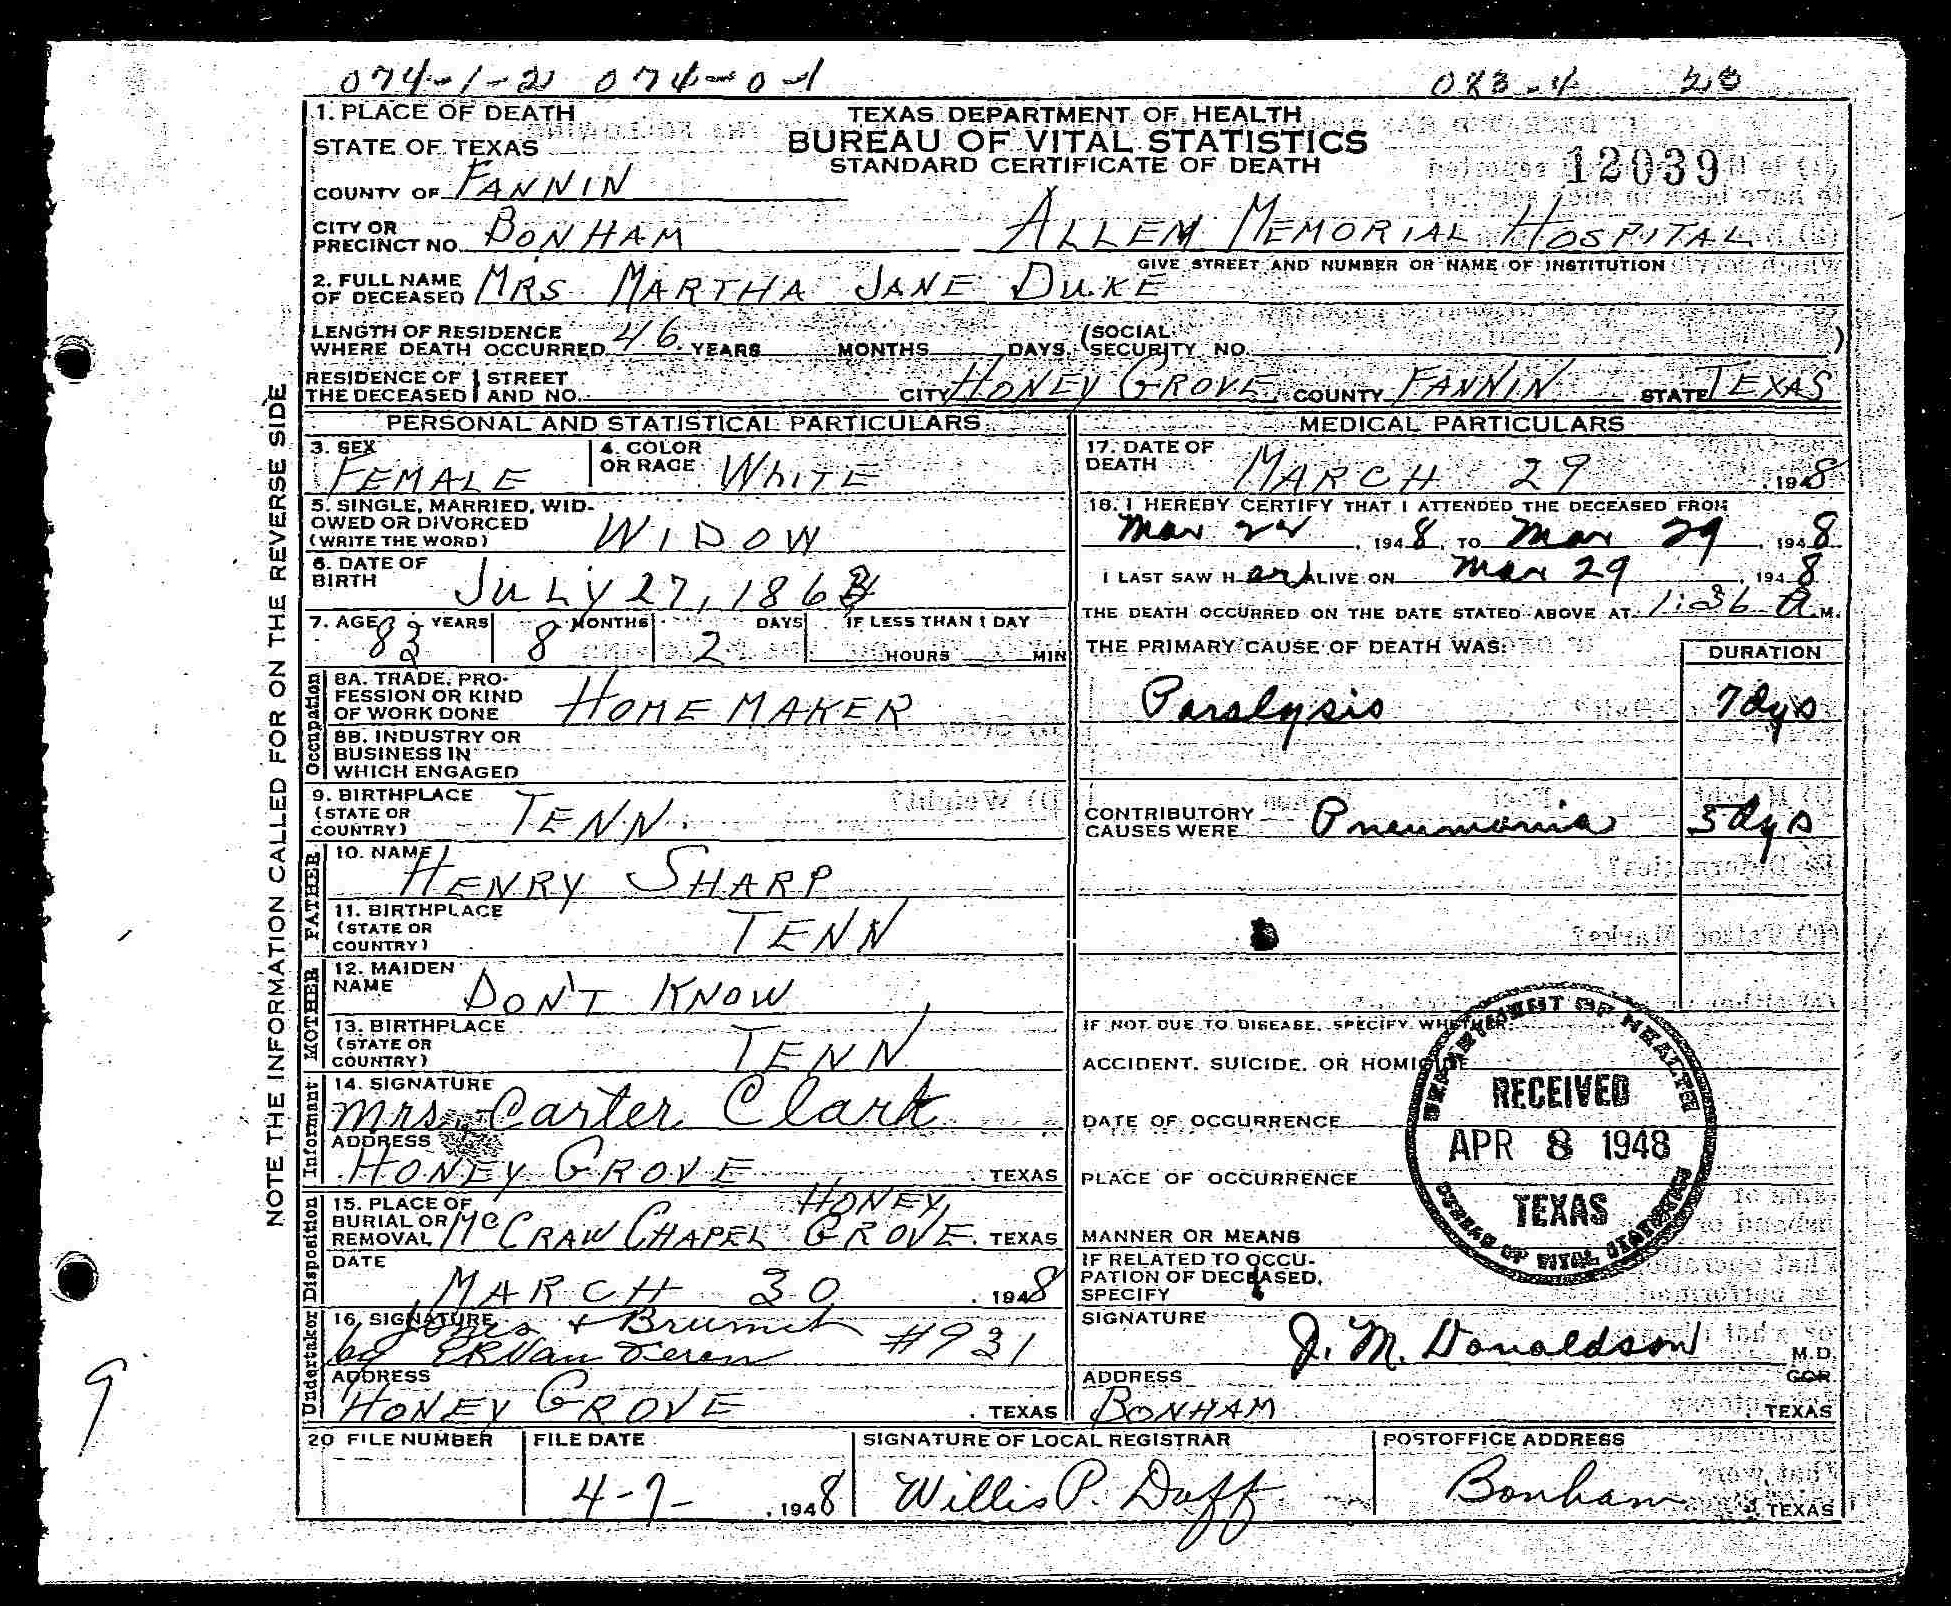 074-1-2 074-0-1 083-4 20
1. PLACE OF DEATH
STATE OF TEXAS
COUNTY OF FANNIN
TEXAS DEPARTMENT OF HEALTH
BUREAU OF VITAL STATISTICS
STANDARD CERTIFICATE OF DEATH
12039
CITY OR PRECINCT NO. BONHAM ALLEN MEMORIAL HOSPITAL
GIVE STREET AND NUMBER OR NAME OF INSTITUTION
2. FULL NAME OF DECEASED MRS MARTHA JANE DUKE
LENGTH OF RESIDENCE WHERE DEATH OCCURRED 46 YEARS MONTHS DAYS (SOCIAL SECURITY NO. )
RESIDENCE OF THE DECEASED STREET AND NO. CITY HONEY GROVE COUNTY FANNIN STATE TEXAS
NOTE THE INFORMATION CALLED FOR ON THE REVERSE SIDE
PERSONAL AND STATISTICAL PARTICULARS
3. SEX FEMALE
4. COLOR OR RACE WHITE
5. SINGLE, MARRIED, WIDOWED OR DIVORCED (WRITE THE WORD) WIDOW
6. DATE OF BIRTH JULY 27, 186
7. AGE 83 YEARS 8 MONTHS 2 DAYS IF LESS THAN 1 DAY HOURS MIN
Occupation
8A. TRADE, PROFESSION OR KIND OF WORK DONE HOME MAKER
8B. INDUSTRY OR BUSINESS IN WHICH ENGAGED
9. BIRTHPLACE (STATE OR COUNTRY) TENN.
FATHER
10. NAME HENRY SHARP
11. BIRTHPLACE (STATE OR COUNTRY) TENN
MOTHER
12. MAIDEN NAME DON'T KNOW
13. BIRTHPLACE (STATE OR COUNTRY) TENN
Informant
14. SIGNATURE Mrs. Carter Clark
ADDRESS HONEY GROVE TEXAS
Disposition
15. PLACE OF BURIAL OR REMOVAL McCRAW CHAPEL HONEY GROVE. TEXAS
DATE MARCH 30 1948
Undertaker
16. SIGNATURE Jones & Brumit #931
by
ADDRESS HONEY GROVE TEXAS
MEDICAL PARTICULARS
17. DATE OF DEATH MARCH 29, 1948
18. I HEREBY CERTIFY THAT I ATTENDED THE DECEASED FROM
Mar 22, 1948, TO Mar 29, 1948
I LAST SAW H er ALIVE ON Mar 29, 1948
THE DEATH OCCURRED ON THE DATE STATED ABOVE AT 1:36 A.M.
THE PRIMARY CAUSE OF DEATH WAS: DURATION
Paralysis 7 dys
CONTRIBUTORY CAUSES WERE Pneumonia 5 dys
IF NOT DUE TO DISEASE, SPECIFY WHETHER:
ACCIDENT, SUICIDE, OR HOMICIDE
DATE OF OCCURRENCE
PLACE OF OCCURRENCE
MANNER OR MEANS
DEPARTMENT OF HEALTH
RECEIVED
APR 8 1948
TEXAS
BUREAU OF VITAL STATISTICS
IF RELATED TO OCCUPATION OF DECEASED, SPECIFY
SIGNATURE J. M. Donaldson M.D.
COR
ADDRESS BONHAM TEXAS
20 FILE NUMBER
FILE DATE 4-7-, 1948
SIGNATURE OF LOCAL REGISTRAR Willis P. Duff
POSTOFFICE ADDRESS Bonham, TEXAS
9